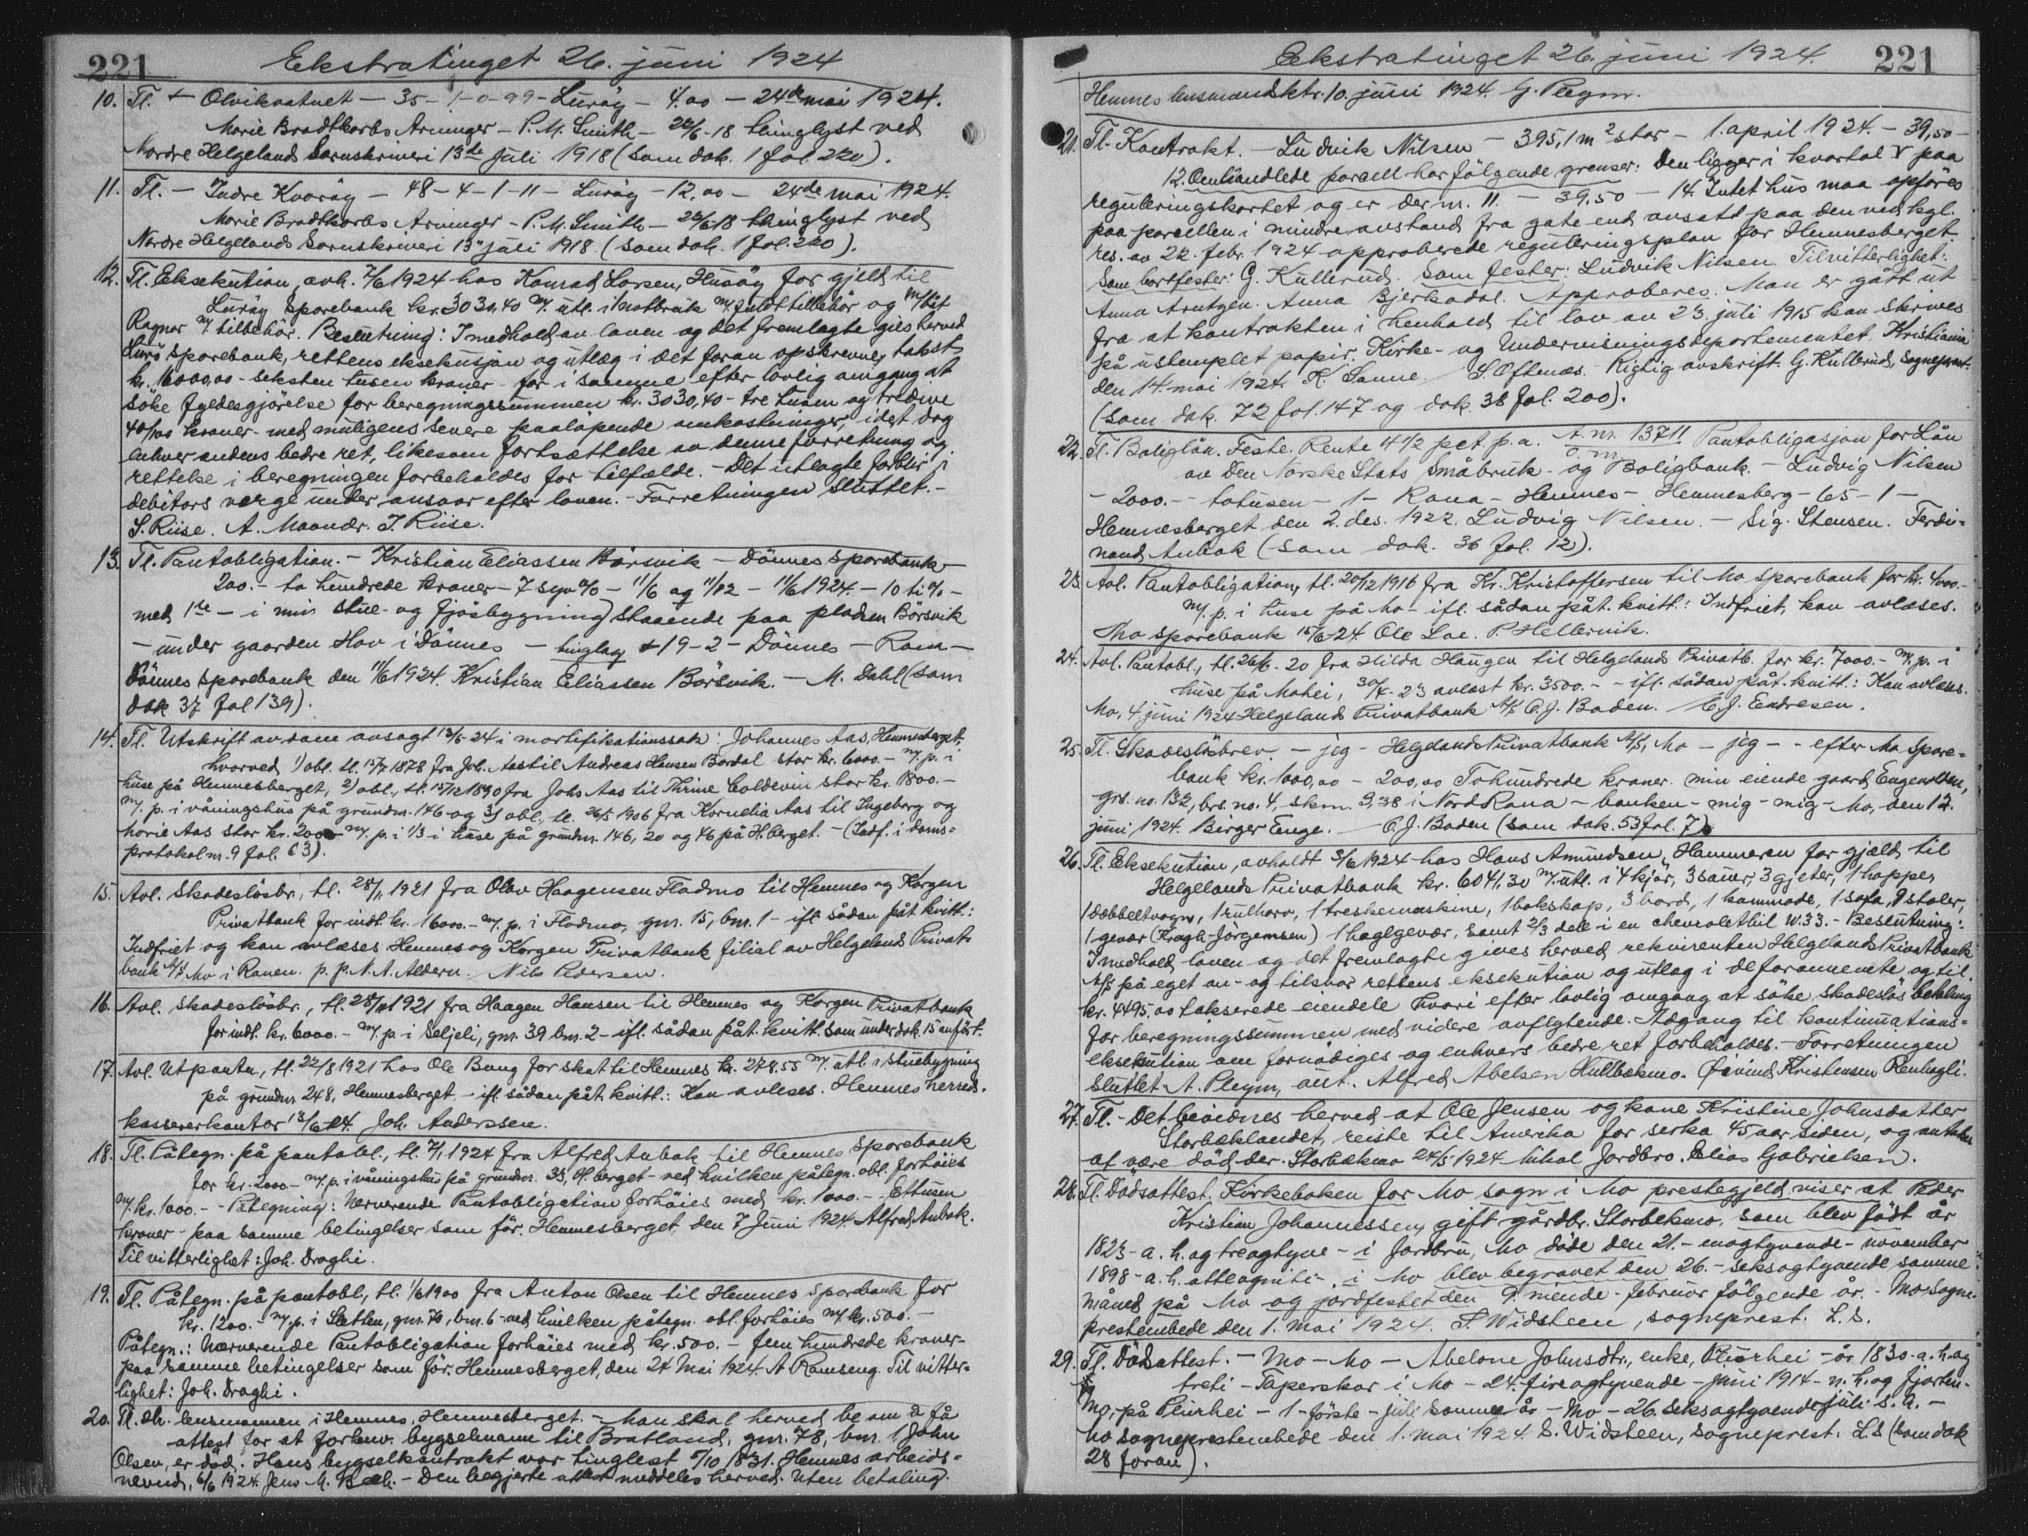 221 Ekstratinget 26. juni 1924
10. Tl. - Olvikvatnet - 35 - 1-0-99 - Lurøy - 4.00 - 24de mai 1924.
Marie Bradtkorbs Arvinger - P. M. Smith - 22/6-18 tinglyst ved
Nordre Helgeland Sorenskriveri 13de Juli 1918 (som dok. 1 fol 220).
11. Tl. - Indre Kvarøy - 48 - 4 - 1 - 11 - Lurøy - 12,00 - 24de mai 1924.
Marie Bradtkorbs Arvinger - P. M. Smith - 22/6-18 thinglyst ved
Nordre Helgelands Sorenskriveri 13 juli 1918 (som dok. 1 fol. 220).
12. Tl. Eksekution, avh. 7/6 1924 hos Konrad Larsen, Husøy for gjeld til
Lurøy Sparebank kr. 3030.40 m/ utl. i notbruk m/ fuldt tilbehør og m/båt
Ragnar m/ tilbehør. Beslutning: I medhold av loven og det fremlagte gies herved
Lurø Sparebank, rettens eksekusjon og utlæg i det foran opskrevne, takst
kr. 16000,00 - seksten tusen kroner - for i samme efter lovlig omgang at
søke fyldesgjørelse for beregningssummen kr. 3030,40 - tre tusen og tredive
40/100 kroner - med muligens senere paaløpende omkostninger, idet dog
enhver andens bedre ret, likesom fortsættelse av denne forretning og
rettelse i beregningen forbeholdes for tilfælde. - Det utlagte forblir i
debitors verge under ansvar efter loven. - Forretningen sluttet. -
S. Riise. A. Moandr. J. Riise.
13. Tl. Pantobligation. - Kristian Eliassen Børsvik - Dønnes Sparebank -
200.- to hundrede kroner - 7 syv % - 11/6 og 11/12 - 11/6 1924. - 10 ti % -
med 1ste - i min stue- og fjøsbygning staaende paa pladsen Børsvik
- under gaarden Hov i Dønnes - tinglag 19 - 2 - Dønnes - Rom -
Dønnes sparebank den 11/6 1924. Kristian Eliassen Børsvik. - M. Dahl (som
dok 37 fol 139).
14. Tl. Utskrift av dom avsagt 12/6-24 i mortifikationssak: Johannes Aas, Hemnesberget,
hvorved 1) obl. tl. 15/7 1878 fra Joh. Aas til Andreas Hansen Bardal stor kr. 6000.- m/. p. i
huse på Hemnesberget, 2) obl., tl. 15/12 1890 fra Johs Aas til Thrine Coldevin stor kr. 1800.-
m/. p. i våningshus på grundnr. 146 og 3) obl., tl. 26/5 1906 fra Kornelia Aas til Ingeborg og
Marie Aas stor kr. 2000- m/. p. i 1/3 i huse på grundnr. 146, 20 og 46 på H.berget. - (Indf. i doms-
protokol nr. 9 fol. 63).
15. Avl. Skadesløsbr., tl. 28/1 1921 fra Olav Haagensen Fladmo til Hemnes og Korgen
Privatbank for indt. kr. 16000.- m/. p. i Fladmo, gnr. 15, bnr. 1 - ifl. sådan påt. kvitt.:
Indfriet og kan avlæses Hemnes og Korgen Privatbank filial av Helgelands Privat-
bank A/S Mo i Ranen. p. p. N. A. Aldern. Nils Pedersen.
16. Avl. skadesløsbr., tl. 28/1 1921 fra Haagen Hansen til Hemnes og Korgen Privatbank
for indt. kr. 6000.- m/. p. i Seljeli, gnr. 39 bnr. 2 - ifl. sådan påt. kvitt. som under dok. 15 anført.
17. Avl. Utpantn., tl. 22/8 1921 hos Ole Bang for skat til Hemnes kr. 278.55 m/. utl. i stuebygning
på grundnr 248, Hemnesberget - ifl. sådan påt. kvitt.: Kan avleses. Hemnes herreds-
kassererkontor 13/6-24. Joh. Anderssen.
18. Tl. Påtegn. på pantobl., tl. 7/1 1924 fra Alfred Aubak til Hemnes Sparebank
for kr. 2000.- m/. p. i våningshus på grundnr. 33, H.berget - ved hvilken påtegn. obl. forhøies
m/ kr. 1000.- - Påtegning: Nærværende Pantobligation forhøies med kr. 1000.- - Ettusen
kroner - paa samme betingelser som før. Hemnesberget, den 7 Juni 1924. Alfred Aubak.
Til vitterlighet: Joh. Draghi.
19. Tl. Påtegn. på pantobl., tl. 1/6 1900 fra Anton Olsen til Hemnes Sparebank for
kr. 1200.- m/. p. i Sletten, gnr. 70, bnr. 6 - ved hvilken påtegn. obl. forhøies m/ kr. 500.-
Påtegn.: Nærværende Pantobligation forhøies med kr. 500.- - fem hundrede kroner -
paa samme betingelser som før. Hemnesberget, den 24 Mai 1924. A Ramseng. Til vitter-
lighet: Joh. Draghi.
20. Tl. Hr. lensmannen i Hemnes, Hemnesberget. - Man skal herved be om å få
attest for at forhenv. bygselmann til Bratland, gnr. 78, bnr. 1 John
Olsen, er død. Hans bygselkontrakt var tinglest 5/10 1831. Hemnes arbeids-
nevnd, 6/6 1924. Jens M. Bech. - Den begjerte attest meddeles herved. Uten betaling.
Ekstratinget 26. juni 1924. 221
Hemnes lensmandsktr. 10. juni 1924. G. Pleym.
21. Tl. Kontrakt. - Ludvik Nilsen - 395,1 m2 stor - 1. april 1924. - 39,50 -
12. Omhandlede parcell har følgende grenser: Den ligger i kvartal V paa
reguleringskartet og er der nr. 11. - 39,50 - 14. Intet hus maa opføres
paa parcellen i mindre avstand fra gate end avsatt paa den ved kgl.
res. av 22. febr. 1924 approberede reguleringsplan for Hemnesberget.
Som bortfester: G. Kullerud. Som fester: Ludvik Nilsen. Til vitterlighet:
Anna Arntzen. Anna Bjerkadal. Approberes. Man er gått ut
fra at kontrakten i henhold til lov av 23. juli 1915 kan skrives
på ustemplet papir. Kirke- og Undervisningsdepartementet, Kristiania
den 14. mai 1924. K. Sanne. / S. Oftenæs. Rigtig avskrift. G. Kullerud, sogneprest.
(som dok. 72 fol. 147 og dok. 38 fol. 200).
22. Tl. Boliglån. Feste. Rente 4 1/2 pct. p. a. A. nr. 13711. Pantobligasjon for Lån
av Den Norske Stats Småbruk- og Boligbank. - Ludvig Nilsen
- 2000.- - totusen - 1 - Rana - Hemnes - Hemnesberg - 65 - 1 -
Hemnesberget den 2. des. 1922. Ludvig Nilsen. - Sig. Stensen. Ferdi-
nand Aubak (som dok. 36 fol. 12).
23. Avl. Pantobligation, tl. 20/12 1916 fra Kr. Kristoffersen til Mo Sparebank for kr. 4000.-
m/. p. i huse på Mo - ifl. sådan påt. kvitt.: Indfriet, kan avlæses.
Mo sparebank 15/6-24. Ole Loe. P. Hellervik.
24. Avl. Pantobl., tl. 26/6-20 fra Hilda Haugen til Helgelands Privatb. for kr. 7000.- m/. p. i
huse på Mohei, 30/7-23 avløst kr. 3500.- - ifl. sådan påt. kvitt.: Kan avlæses.
Mo, 4 juni 1924 Helgelands Privatbank A/S O. J. Boden. C. J. Endresen.
25. Tl. Skadesløsbrev - jeg - Helgelands Privatbank A/S, Mo - jeg - - efter Mo Spare-
bank kr. 1000,00 - 200,00 Tohundrede kroner. min eiende gaard Engevolden,
grs. no. 132, brs. no. 4, skm. 3,38 i Nord Rana - banken - mig - mig - Mo, den 12
juni 1924. Birger Enge. - O. J. Boden (som dok. 53 fol. 7)
26. Tl. Eksekution, avholdt 3/6 1924 hos Hans Amundsen, Hammeren for gjæld til
Helgelands Privatbank kr. 6041.30 m/. utl. i 4 kjør, 3 sauer, 3 gjeter, 1 hoppe,
1 dobbeltvogn, 1 rulharv, 1 treskemaskine, 1 bokskap, 3 bord, 1 kommode, 1 sofa, 9 stoler,
1 gevær (Kragh-Jørgensen) 1 haglgevær, samt 2/3 dele i en chevroletbil W.33. - Beslutning:
I medhold loven og det fremlagte gives herved rekvirenten Helgelands Privatbank
A/S på eget an- og tilsvar rettens eksekution og utlæg i de forannevnte og til
kr. 4495,00 takserede eiendele hvori efter lovlig omgang at søke skadesløs betaling
for beregningssummen med videre avflytende. Adgang til kontinuations-
eksekution om fornødiges og enhvers bedre ret forbeholdes. - Forretningen
sluttet. A. Pleym, aut. Alfred Abelsen Hullbækmo. Øivind Kristensen Renhagli.
27. Tl. - Det bevidnes herved at Ole Jensen og kone Kristine Johnsdatter
Storbæklandet, reiste til Amerika for serka 45 aar siden, og antakes
at være død der. Storbækmo 24/5-1924 Mikal Jordbro. Elias Gabrielsen.
28. Tl. Dødsattest. Kirkeboken for Mo sogn i Mo prestegjeld viser at Peder
Kristian Johannessen, gift gårdbr. Storbekmo, som blev født år
1823 - a. h. og treogtyve - i Jordbru, Mo døde den 21. - enogtyvende - november
1898 - a. h. otteogniti -, i Mo blev begravet den 26. - seksogtyvende samme
måned på Mo og jordfestet den 9. niende - februar følgende år. - Mo sogne-
prestembede den 1. mai 1924. S. Widsteen, sogneprest. L.S.
29. Tl. Dødsattest. - Mo - Mo - Abelone Johnsdtr., enke, Plurhei - år 1830 - a. h. og
treti - Taperskar i Mo - 24. fireogtyvende - juni 1914 - n. h. og fjorten -
Mo, på Plurhei - 1 - første - juli samme år - Mo - 26. seksogtyvende juli s. a. -
Mo sogneprestembede den 1. mai 1924. S. Widsteen, sogneprest. L.S (som dok
28 foran).